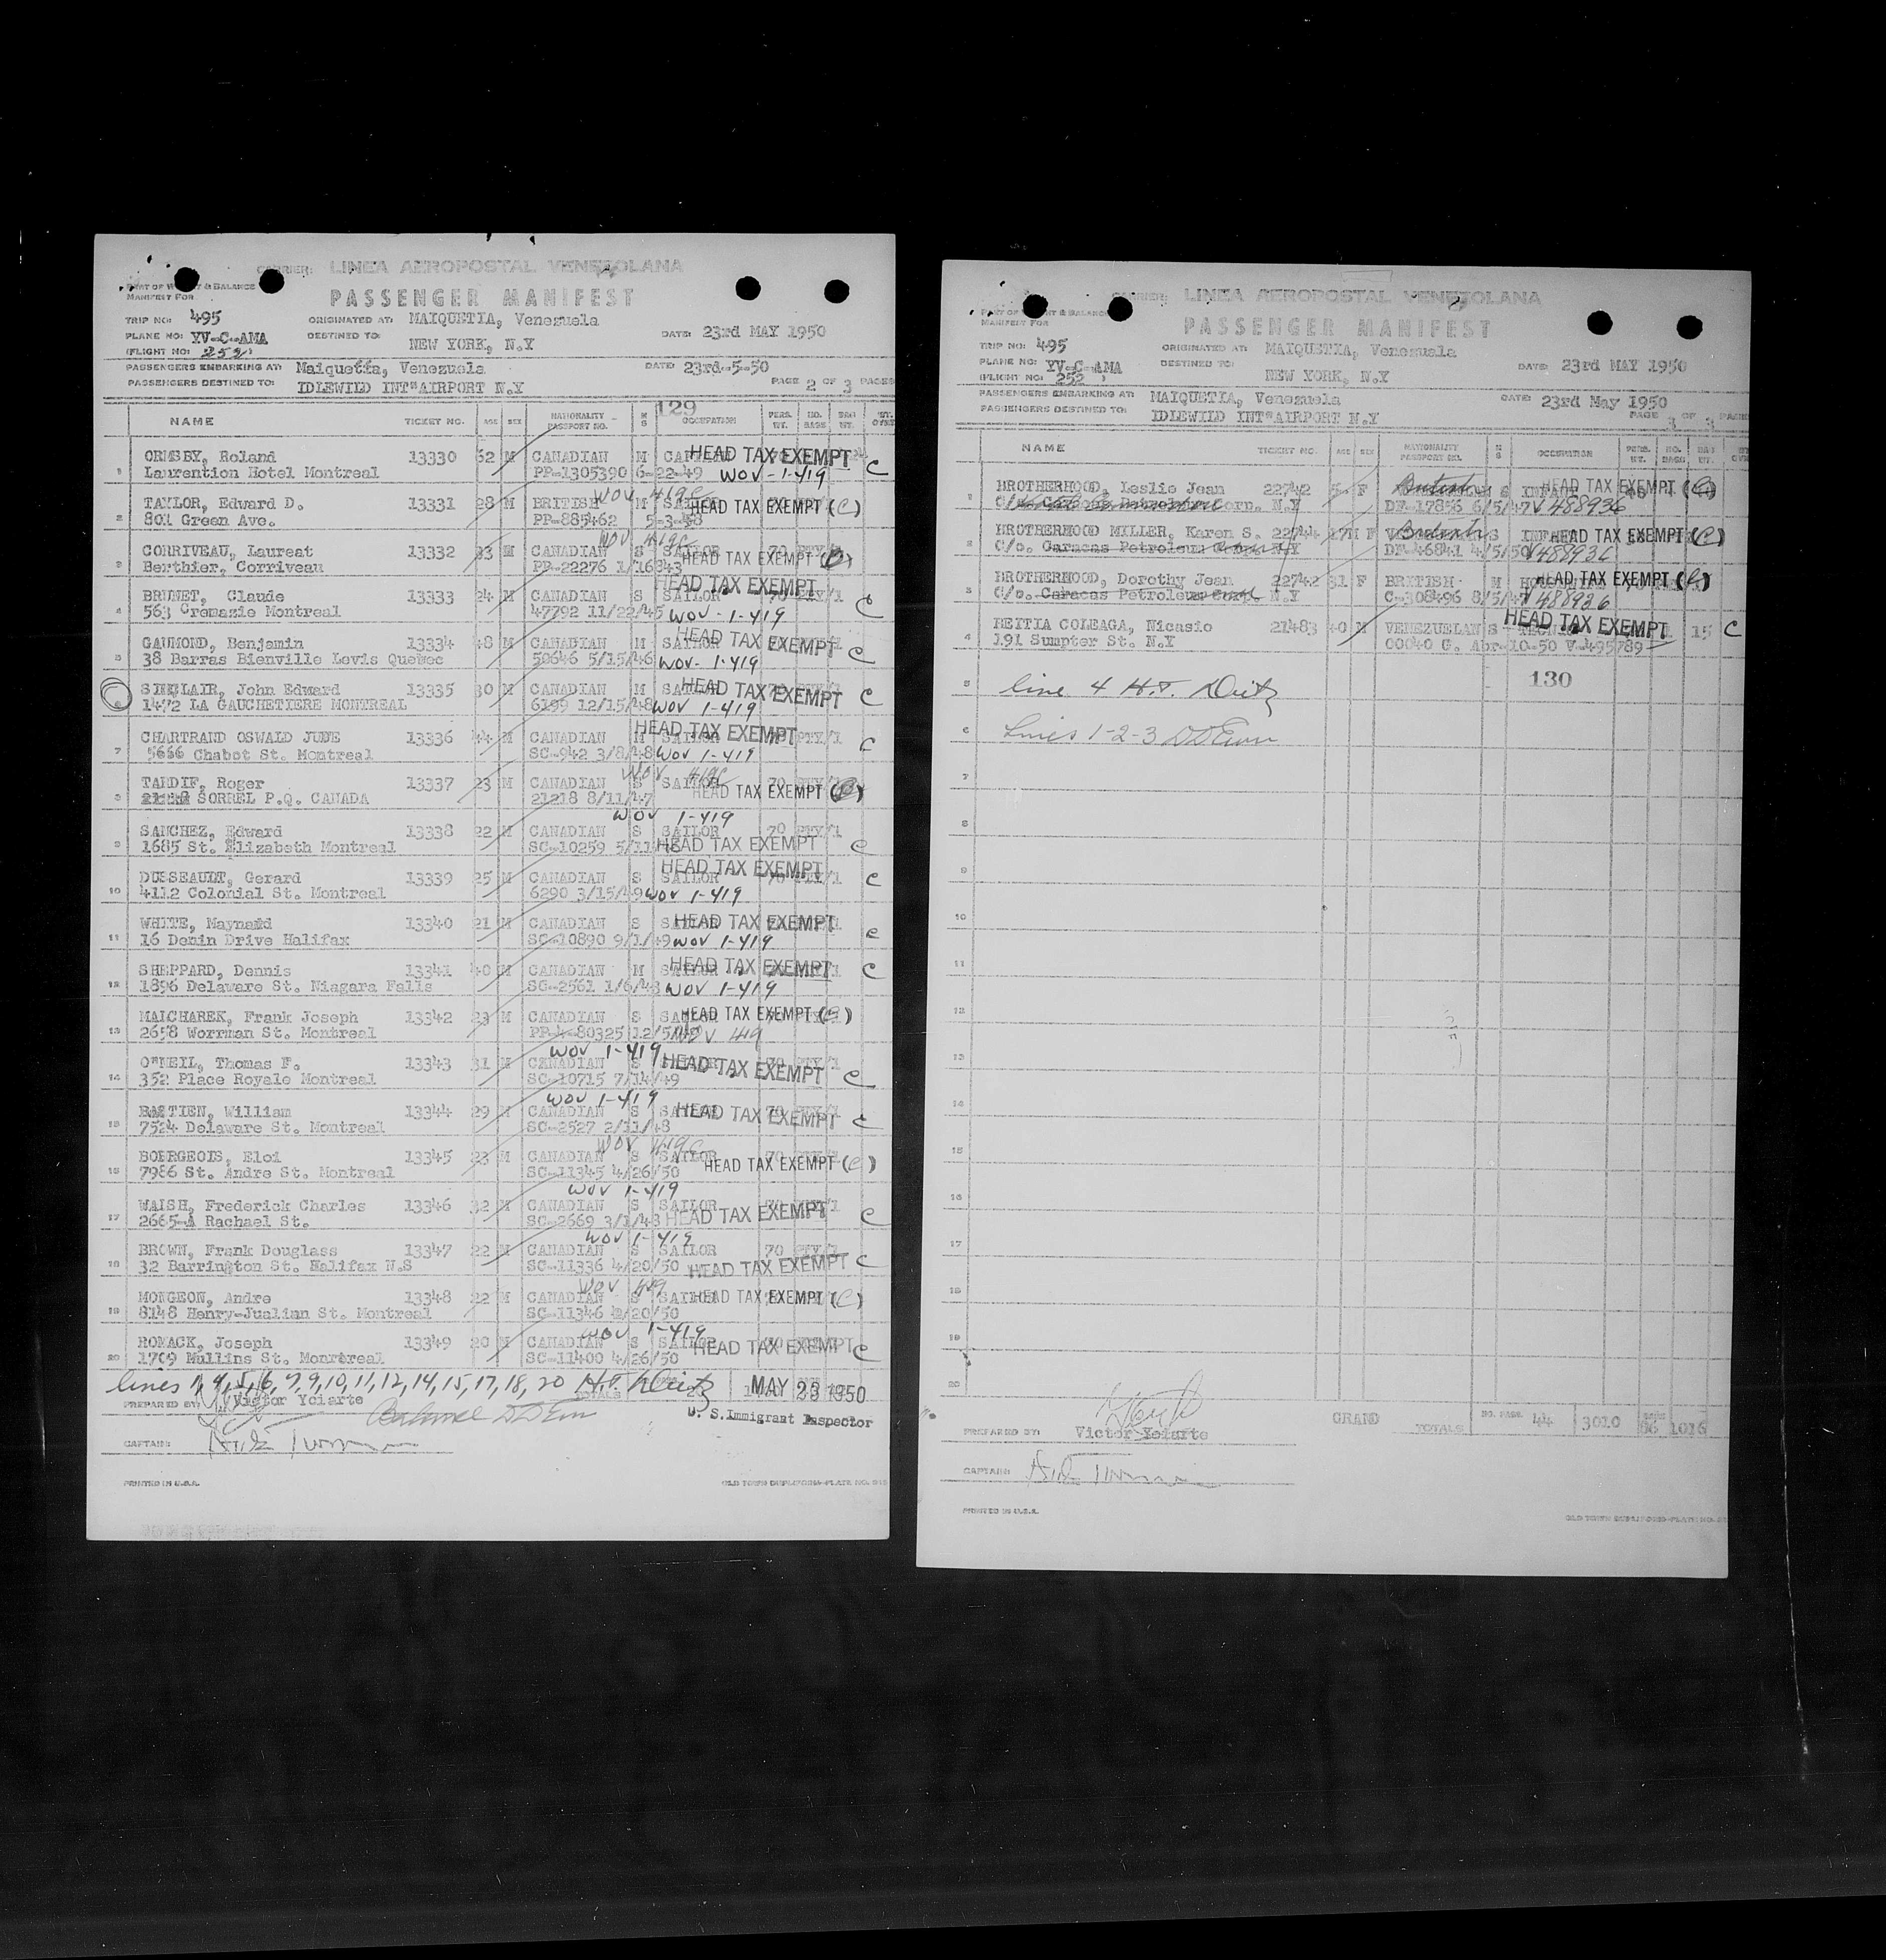 CARRIER: LINEA AEROPOSTAL VENEZOLANA
PART OF W T & BALANCE
MANIFEST FOR
PASSENGER MANIFEST
TRIP NO: 495 ORIGINATED AT: MAIQUETIA, Venezuela
PLANE NO: YV-C-AMA DESTINED TO: DATE: 23rd MAY 1950
(FLIGHT NO: 252) NEW YORK, N.Y
PASSENGERS EMBARKING AT: Maiquetia, Venezuela DATE: 23rd-5-50
PASSENGERS DESTINED TO: IDLEWILD INT"AIRPORT N.Y PAGE 2 OF 3 PAGES
129
NAME TICKET NO. AGE SEX NATIONALITY PASSPORT NO. M S OCCUPATION PERS. WT. NO. BAGS BAG WT.
1 ORMSBY, Roland 13330 62 M CANADIAN M HEAD TAX EXEMPT
Laurention Hotel Montreal PP-1305390 6-22-49 WOV - 1-419 C
2 TAYLOR, Edward D. 13331 28 M BRITISH M WOV 419c HEAD TAX EXEMPT (C)
801 Green Ave. PP-885462 5-3-48
3 CORRIVEAU, Laureat 13332 33 M CANADIAN S SAILOR WOV 419c
Berthier, Corriveau PP-22276 1/16/43 HEAD TAX EXEMPT (C)
4 BRUNET, Claude 13333 24 M CANADIAN S SAILOR HEAD TAX EXEMPT
563 Cremazie Montreal 47792 11/22/45 WOV - 1-419 C
5 GAUMOND, Benjamin 13334 48 M CANADIAN M SAILOR HEAD TAX EXEMPT
38 Barras Bienville Levis Quebec 50646 5/15/46 WOV- 1-419 C
6 SINCLAIR, John Edward 13335 30 M CANADIAN M SAILOR HEAD TAX EXEMPT C
1472 LA GAUCHETIERE MONTREAL 6199 12/15/48 WOV 1-419
7 CHARTRAND OSWALD JUDE 13336 44 M CANADIAN M SAILOR HEAD TAX EXEMPT
5666 Chabot St. Montreal SC-942 3/8/48 WOV 1-419 C
8 TARDIF, Roger 13337 23 M CANADIAN S SAILOR 70 WOV 419c
SORREL P.Q. CANADA 21218 8/11/47 HEAD TAX EXEMPT (C)
WOV 1-419
9 SANCHEZ, Edward 13338 22 M CANADIAN S SAILOR 70 PTY/1
1685 St. Elizabeth Montreal SC-10259 5/11 HEAD TAX EXEMPT C
10 DUSSEAULT, Gerard 13339 25 M CANADIAN S SAILOR HEAD TAX EXEMPT C
4112 Colonial St. Montreal 6290 3/15/49 WOV 1-419
11 WHITE, Maynard 13340 21 M CANADIAN S SAILOR HEAD TAX EXEMPT
16 Demin Drive Halifax SC-10890 9/1/49 WOV 1-419 C
12 SHEPPARD, Dennis 13341 40 M CANADIAN M SAILOR HEAD TAX EXEMPT C
1896 Delaware St. Niagara Falls SC-2561 1/6/48 WOV 1-419
13 MALCHAREK, Frank Joseph 13342 23 M CANADIAN S SAILOR HEAD TAX EXEMPT (C)
2658 Worrman St. Montreal PP-4-80325 12/5/ WOV 419
WOV 1-419
14 O'NEIL, Thomas F. 13343 31 M CANADIAN S SAILOR HEAD TAX EXEMPT
352 Place Royale Montreal SC-10715 7/14/49 C
WOV 1-419
15 BASTIEN, William 13344 29 M CANADIAN S SAILOR HEAD TAX EXEMPT
7524 Delaware St. Montreal SC-2527 2/11/48 C
WOV 419c
16 BOURGEOIS, Eloi 13345 23 M CANADIAN S SAILOR
7986 St. Andre St. Montreal SC-11345 4/26/50 HEAD TAX EXEMPT (C)
WOV 1-419
17 WALSH, Frederick Charles 13346 32 M CANADIAN S SAILOR
2665-A Rachael St. SC-2669 3/1/48 HEAD TAX EXEMPT C
WOV 1-419
18 BROWN, Frank Douglass 13347 22 M CANADIAN S SAILOR 70 PTY/1
32 Barrington St. Halifax N.S SC-11336 4/20/50 HEAD TAX EXEMPT C
WOV 419
19 MONGEON, Andre 13348 22 M CANADIAN S SAILOR HEAD TAX EXEMPT (C)
8148 Henry-Jualian St. Montreal SC-11346 4/20/50
WOV 1-419
20 ROMACK, Joseph 13349 20 M CANADIAN S SAILOR
1709 Mullins St. Montreal SC-11400 4/26/50 HEAD TAX EXEMPT C
lines 1,4,5,6,7,9,10,11,12,14,15,17,18,20 H.T. Deitz TOTALS MAY 23 1950
PREPARED BY: Victor Yciarte
U. S. Immigrant Inspector
CAPTAIN:
PRINTED IN U.S.A.
CARRIER: LINEA AEROPOSTAL VENEZOLANA
PART OF NT & BALANCE
MANIFEST FOR
PASSENGER MANIFEST
TRIP NO: 495 ORIGINATED AT: MAIQUETIA, Venezuela
PLANE NO: YV-C-AMA DESTINED TO: DATE: 23rd MAY 1950
(FLIGHT NO: 252) NEW YORK, N.Y
PASSENGERS EMBARKING AT: MAIQUETIA, Venezuela DATE: 23rd May 1950
PASSENGERS DESTINED TO: IDLEWILD INT"AIRPORT N.Y PAGE 3 OF 3 PAGES
NAME TICKET NO. AGE SEX NATIONALITY PASSPORT NO. M S OCCUPATION PERS. WT. NO. BAGS BAG WT.
1 BROTHERHOOD, Leslie Jean 22742 5 F British S INFANT HEAD TAX EXEMPT (C)
C/o. Corn. N.Y DF-17856 6/5/47 V488936
2 BROTHERHOOD MILLER, Karen S. 22744 17M F British S HEAD TAX EXEMPT (C)
C/o. Caracas Petroleum N.Y DF-46841 4/5/50 V488936
3 BROTHERHOOD, Dorothy Jean 22742 31 F BRITISH M HEAD TAX EXEMPT (C)
C/o. Caracas Petroleum Corp. N.Y C-308496 8/5/47 V488936
4 BEITIA COLEAGA, Nicasio 21483 40 M VENEZUELAN S HEAD TAX EXEMPT 15 C
191 Sumpter St. N.Y 00040 G. Abr-10-50 V-495789
130
5 line 4 H.T. Deitz
6 Lines 1-2-3
7
8
9
10
11
12
13
14
15
16
17
18
19
20
GRAND TOTALS NO. PASS. 44 3010 66 1016
PREPARED BY: Victor Yciarte
CAPTAIN:
PRINTED IN U.S.A.